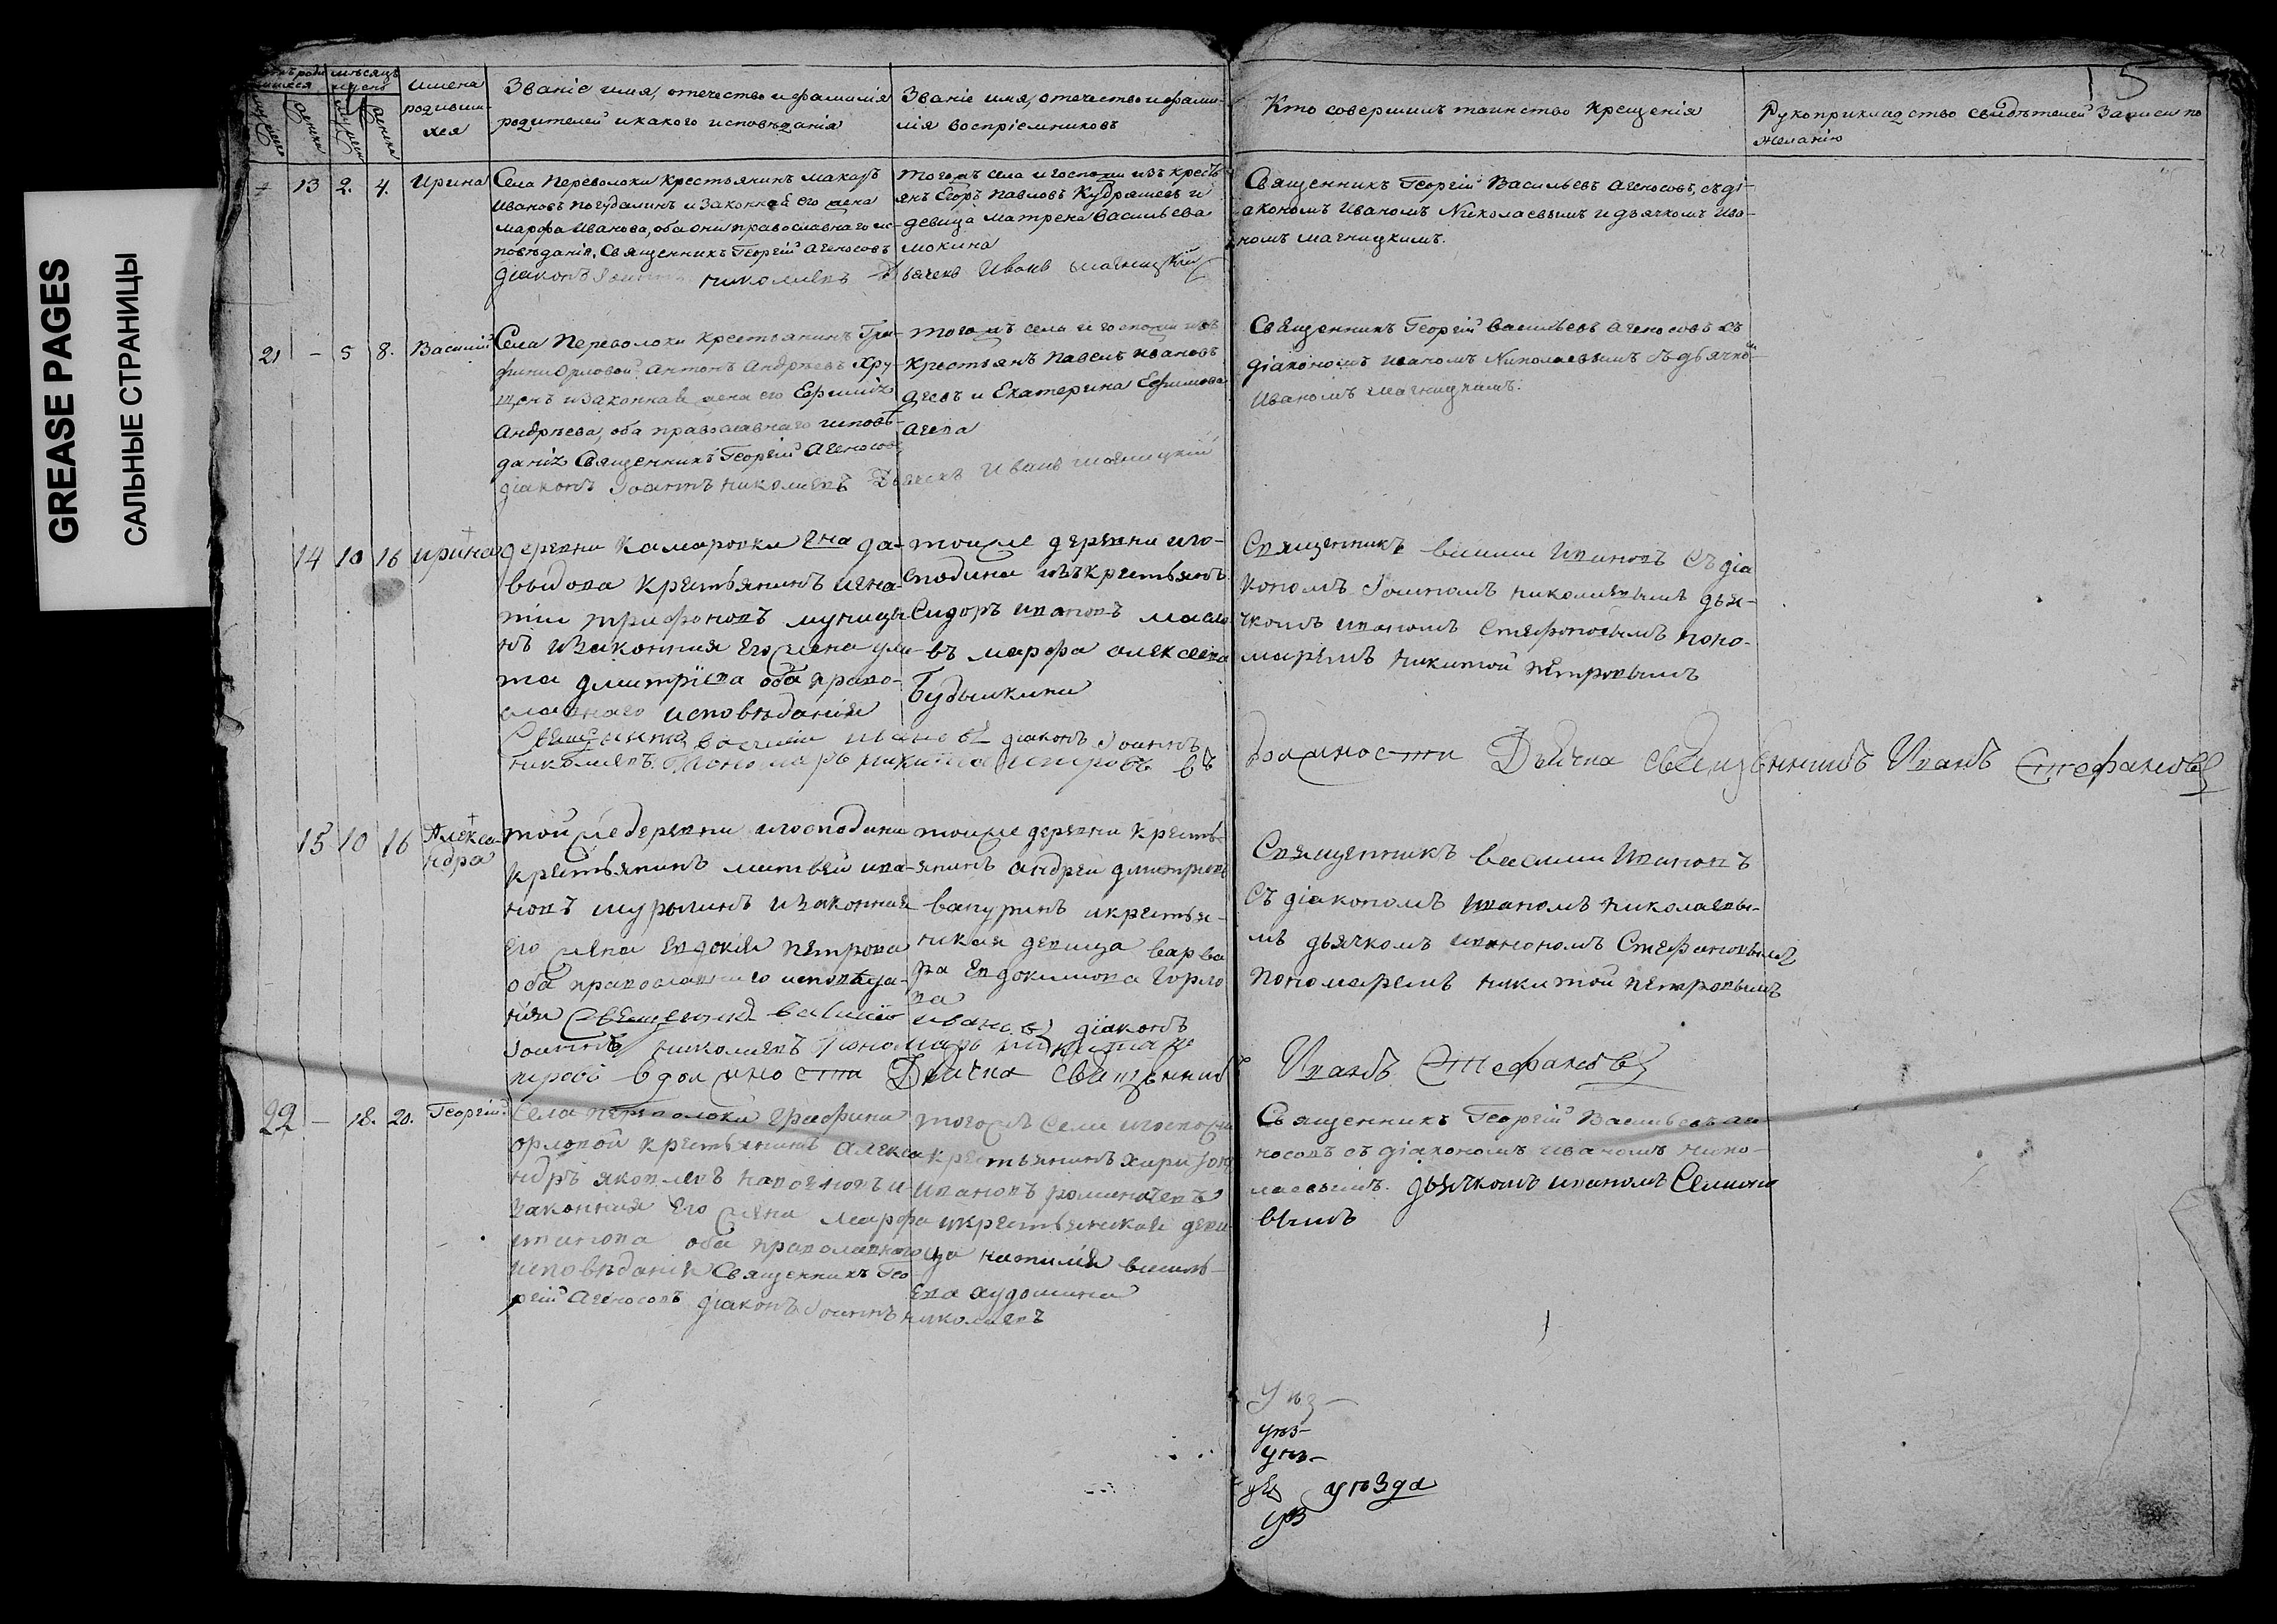 GREASE PAGES
САЛЬНЫЕ СТРАНИЦЫ
15
имена
родивши-
хся
Званіе имя, отечество и фамилія
родителей и какого исповѣданія
Званіе имя, отечество и фами-
лія воспріемниковъ
Кто совершилъ таинство крещенія
Рукоприкладство свидѣтелей записи по
желанію
13 2. 4. Ирина
Села Переволоки крестьянинъ макаръ
Ивановъ погудалинъ и законная его жена
марфа Иванова, оба они православнаго ис-
повѣданія. Священникъ Георгій Агеносовъ
діаконъ Николаевъ Дьячекъ Иванъ магницкій
тогожъ села и госпожи изъ кресть-
янъ Егоръ Павловъ Кудряшевъ и
девица матрена васильева
мокина
Священникъ Георгій Васильевъ Агеносовъ, съ ді-
акономъ Иваномъ Николаевымъ и дьячкомъ Ива-
номъ магницкимъ.
21 – 5 8. Василій
Села Переволоки крестьянинъ Гра-
фини Орловой Антонъ Андрѣевъ Хру-
щевъ и законная жена его
Андрѣева, оба православнаго исповѣ-
данія Священникъ Георгій Агеносовъ
діаконъ Іоаннъ Николаевъ Дьячекъ Иванъ магницкій
тогожъ села и госпожи изъ
крестьянъ Павелъ Ивановъ
и Екатерина Ефимова
Священникъ Георгій Васильевъ Агеносовъ съ
діакономъ Иваномъ Николаевымъ съ дьячко
Иваномъ магницкимъ.
14 10 16 Ирина
деревни Камаровки да-
выдова крестьянинъ игна-
тіи трифоновъ
нъ и законная его жена ули-
та дмитріева оба право-
славнаго исповѣданія
Священникъ василіи ивановъ діаконъ Іоаннъ
николаевъ. Пономарь никита петровъ въ
должности Дьячка священникъ Иванъ Стефановъ
тоижже деревни иго-
сподина изъ крестьянъ
Сидоръ ивановъ
въ марфа алексеева
будылкина
Священникъ василии Ивановъ съ діа
кономъ Іоанномъ николаевымъ дья-
чкомъ иваномъ Стефановымъ поно-
маремъ никитой петровымъ
15 10 16 Алекса-
ндра
тойже деревни игосподина
крестьянинъ матвей ива-
новъ и законная
его жена евдокия петрова
оба православнаго исповѣда-
нія Священникъ василіи ивановъ діаконъ
Іоаннъ николаевъ Пономарь никита пе
тровъ в должности Дьячка священникъ Иванъ Стефановъ
тоиже деревни кресть-
янинъ андреи дмитриевъ
вапуринъ и крестья-
нская девица варва
ра евдокимова горло
ва
Священникъ василии Ивановъ
съ діакономъ иваномъ николаевы-
мъ дьячкомъ иваномъ Стефановымъ
пономаремъ никитой петровымъ
22 – 18. 20. Георгій
Села переволоки графини
орловой крестьянинъ алекса
ндръ яковлевъ и
законная его жена марфа
оба православнаго
исповѣданія Священникъ Гео
ргій Агеносовъ діаконъ Іоаннъ николаевъ
тогожъ села и госпожи
крестьянинъ харитонъ
ивановъ
и крестьянская деви
ца наталия василь-
ева худошина
Священникъ Георгій Васильевъ аге
носовъ съ діакономъ иваномъ нико-
лаевымъ. дьячкомъ иваномъ Семионо
вымъ
уѣз–
уѣз–
уѣз–
уѣзда
уѣз